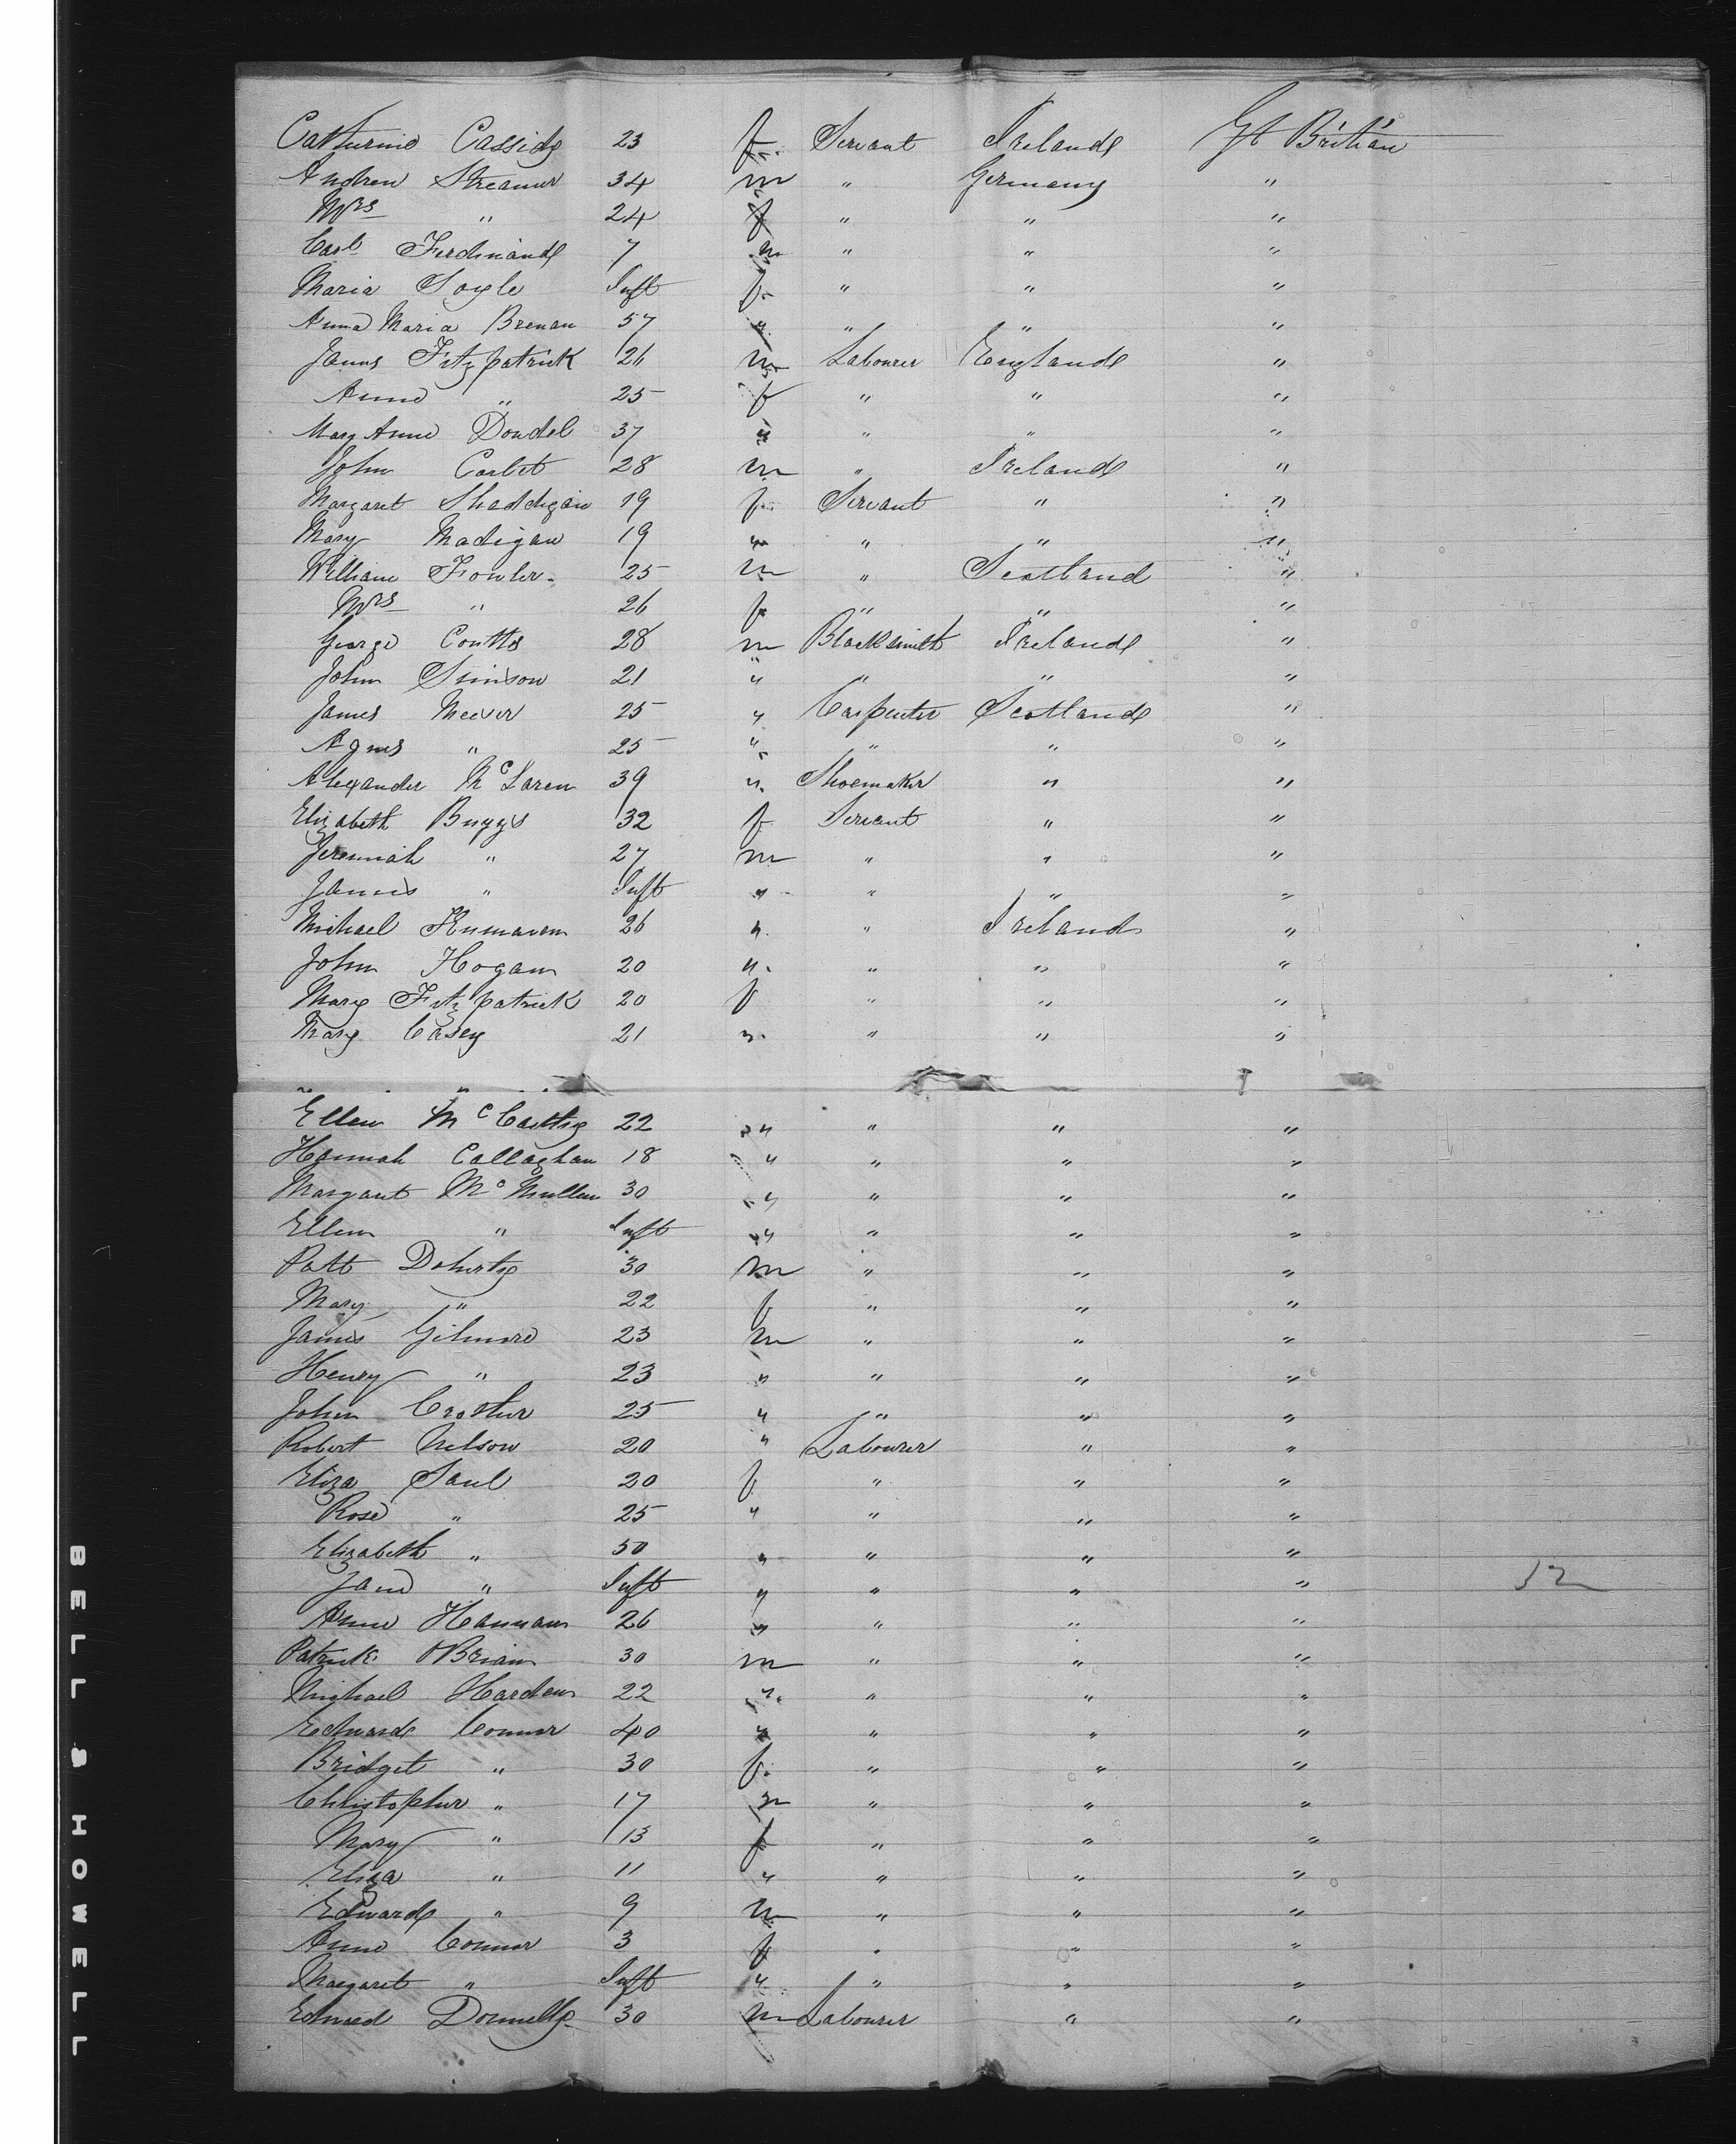 Catherine Cassidy 23 f. Servant Ireland Gt Britian
Andrew Streamer 34 m " Germany "
Mrs " 24 f " " "
Carl Ferdinand 7 m " " "
Maria Soyle Inft f. " " "
Anna Maria Brenan 57 " " " "
James Fitzpatrick 26 m Labourer England "
Anne " 25 f " " "
Mary Anne Dowdel 37 " " " "
John Corbet 28 m " Ireland "
Margaret Shaddigan 19 f. Servant " "
Mary Madigan 19 " " " "
William Fowler 25 m " Scotland "
Mrs " 26 f. " " "
George Coutts 28 m Blacksmith Ireland "
John Simson 21 " " " "
James Meever 25 " Carpenter Scotland "
Agnes " 25 " " " "
Alexander McLaren 39 " Shoemaker " "
Elizabeth Buggs 32 f Servant " "
Jeremiah " 27 m " " "
James " Inft " " " "
Michael 26 " " Ireland "
John Hogan 20 " " " "
Mary Fitzpatrick 20 f " " "
Mary Casey 21 " " " "
Ellen McCarthy 22 " " " "
Hannah Callaghan 18 " " " "
Margaret McMullen 30 " " " "
Ellen " Inft " " " "
Patt Doherty 30 m " " "
Mary " 22 f " " "
James Gilmore 23 m " " "
Henry " 23 " " " "
John Crother 25 " " " "
Robert Nelson 20 " Labourer " "
Eliza Saul 20 f " " "
Rose " 25 " " " "
Elizabeth " 50 " " " "
Jane " Inft " " " " 52
Anne Hannan 26 " " " "
Patrick OBrian 30 m " " "
Michael Harden 22 " " " "
Edward Connor 40 " " " "
Bridget " 30 f. " " "
Christopher " 17 m " " "
Mary " 13 f " " "
Eliza " 11 " " " "
Edward " 9 m " " "
Anne Connor 3 f " " "
Margaret " Inft " " " "
Edward Donnelly 30 m Labourer " "
BELL & HOWELL